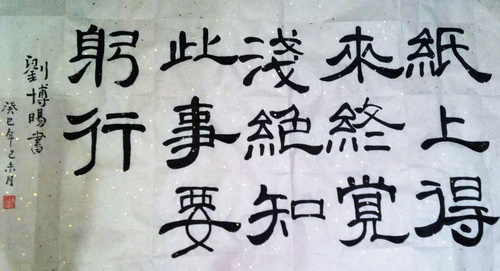 紙上得
來終覺
淺絕知
此事要
躬行
劉博暘書
癸巳年己未月